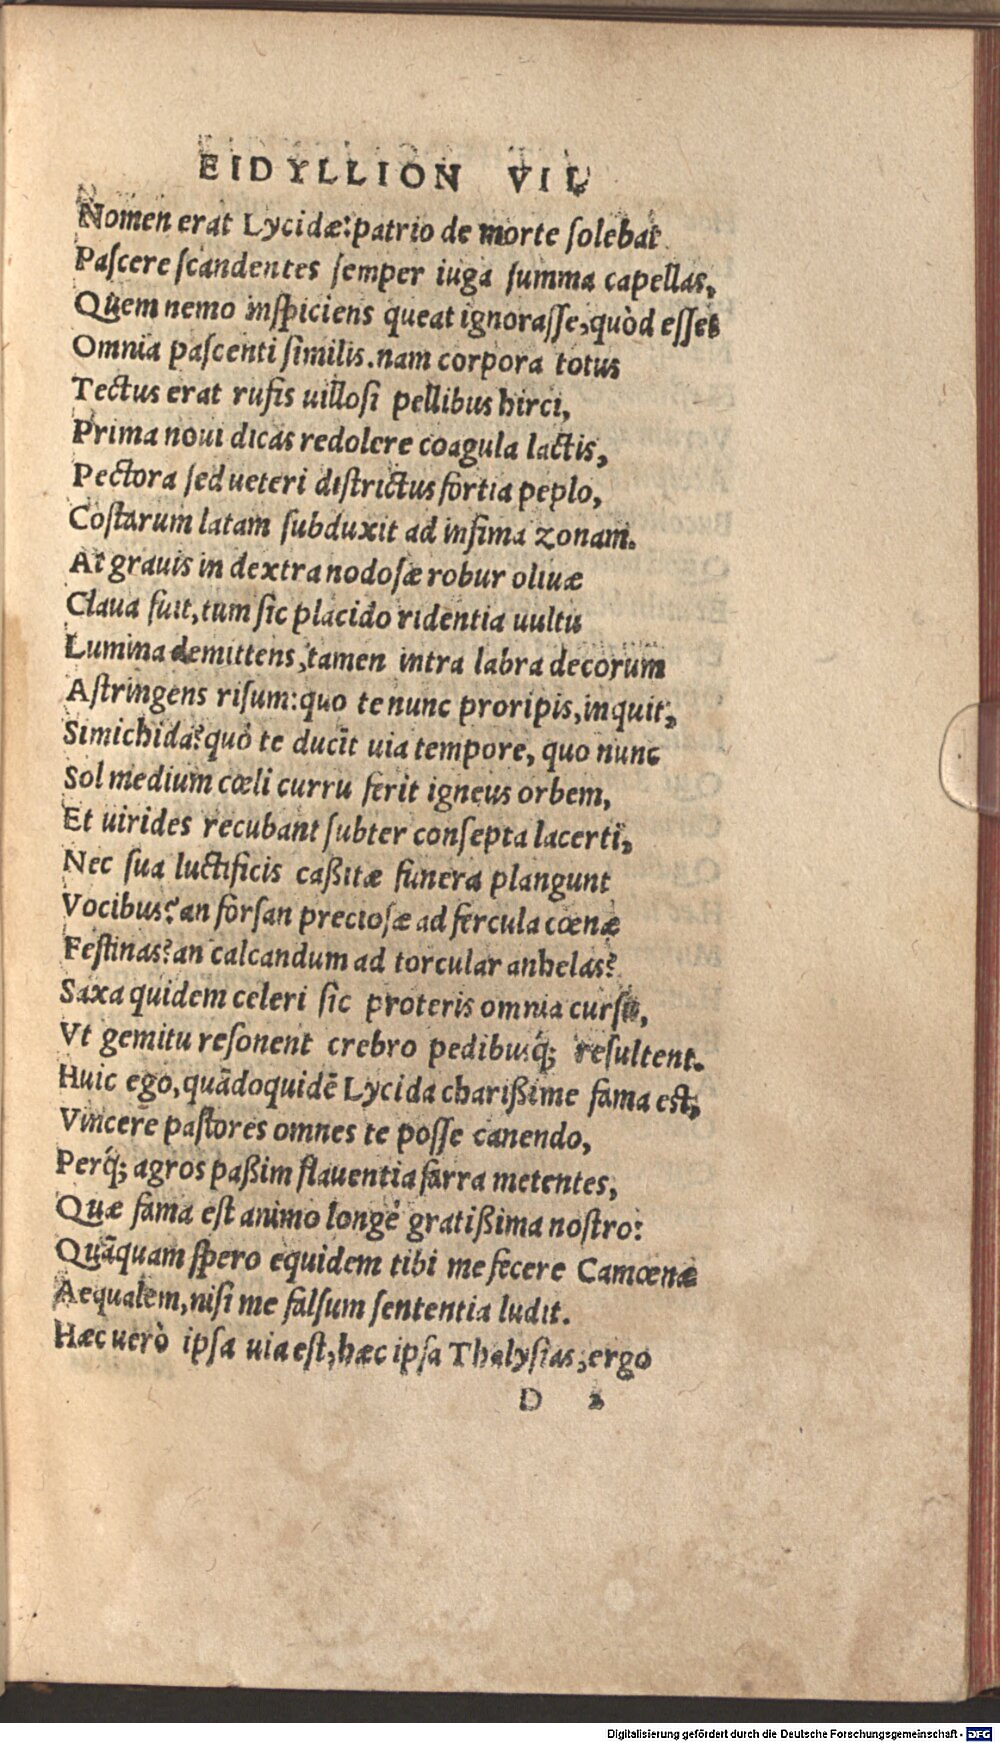 EIDYLLION VII
Nomen erat Lycidæ: patrio de morte solebat
Pascere scandentes semper iuga summa capellas,
Quem nemo inspiciens queat ignorasse, quòd esset
Omnia pascenti similis. nam corpora totus
Tectus erat rufis uillosi pellibus hirci,
Prima noui dicas redolere coagula lactis,
Pectora sed ueteri districtus fortia peplo,
Costarum latam subduxit ad infima zonam.
At grauis in dextra nodosæ robur oliuæ
Claua fuit, tum sic placido ridentia uultu
Lumina demittens, tamen intra labra decorum
Astringens risum: quo te nunc proripis, inquit,
Simichida? quò te ducit uia tempore, quo nunc
Sol medium cœli curru ferit igneus orbem,
Et uirides recubant subter consepta lacerti,
Nec sua luctificis caßitæ funera plangunt
Vocibus? an forsan preciosæ ad fercula cœnæ
Festinas? an calcandum ad torcular anhelas?
Saxa quidem celeri sic proteris omnia cursu,
Vt gemitu resonent crebro pedibusq́; resultent.
Huic ego, quãdoquidẽ Lycida charißime fama est,
Vincere pastores omnes te posse canendo,
Perq́; agros paßim flauentia farra metentes,
Quæ fama est animo longè gratißima nostro:
Quãquam spero equidem tibi me fecere Camœnæ
Aequalem, nisi me falsum sententia ludit.
Hæc uerò ipsa uia est, hæc ipsa Thalysias, ergo
D 2
Digitalisierung gefördert durch die Deutsche Forschungsgemeinschaft - DFG